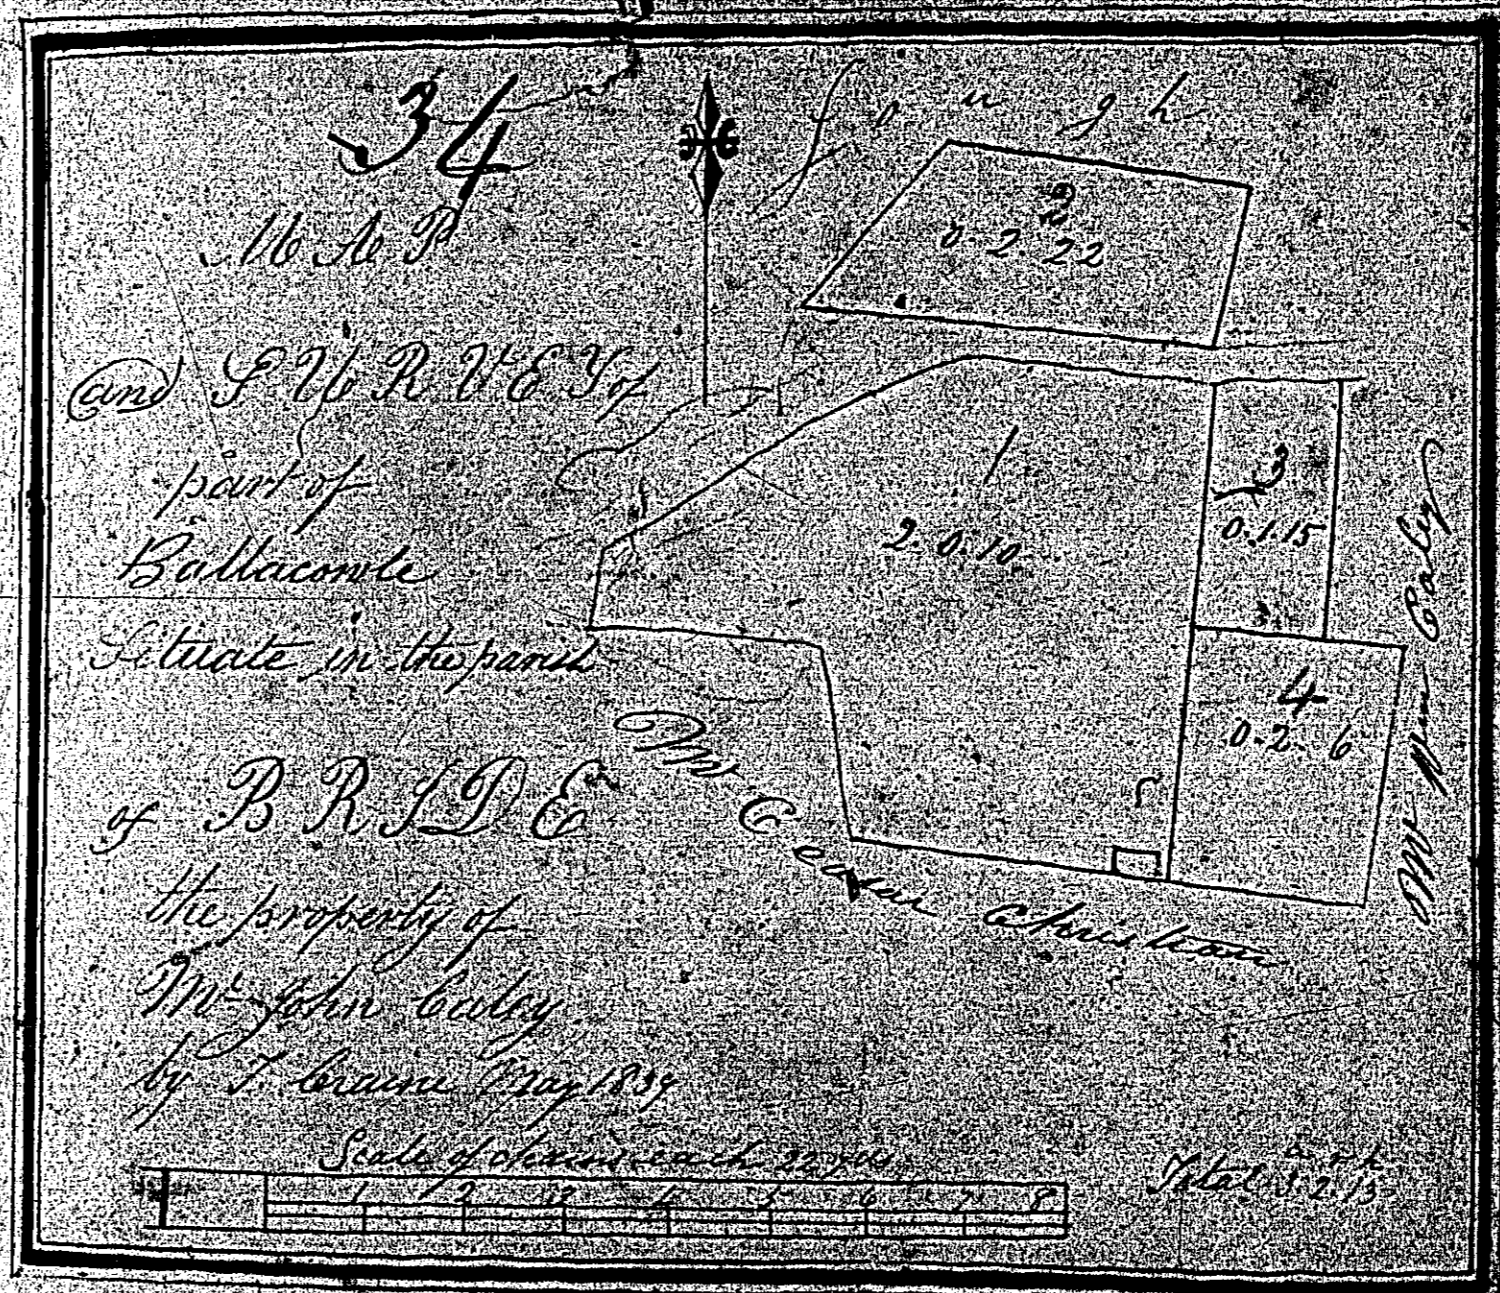 34
MAP
and SURVEY of
part of
Ballacowle
Situate in the parish
of BRIDE
the property of
Mr. John Caley
by T. Craine May 1839
Lough
2
0-2-22
1
2-0-10
3
0.1.15
4
0-2-6
Christian
Caley
Scale of chains each 22 yds
1 2 3 4 5 6 7 8
a r p
Total 3.2.13